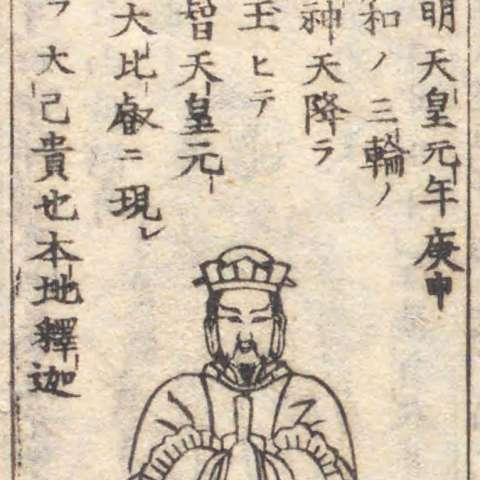 明天皇元年庚申
和ノ三輪ノ
神天降ラ
玉ヒテ
智天皇元
大比叡ニ現レ
ヲ大己貴也本地釋迦